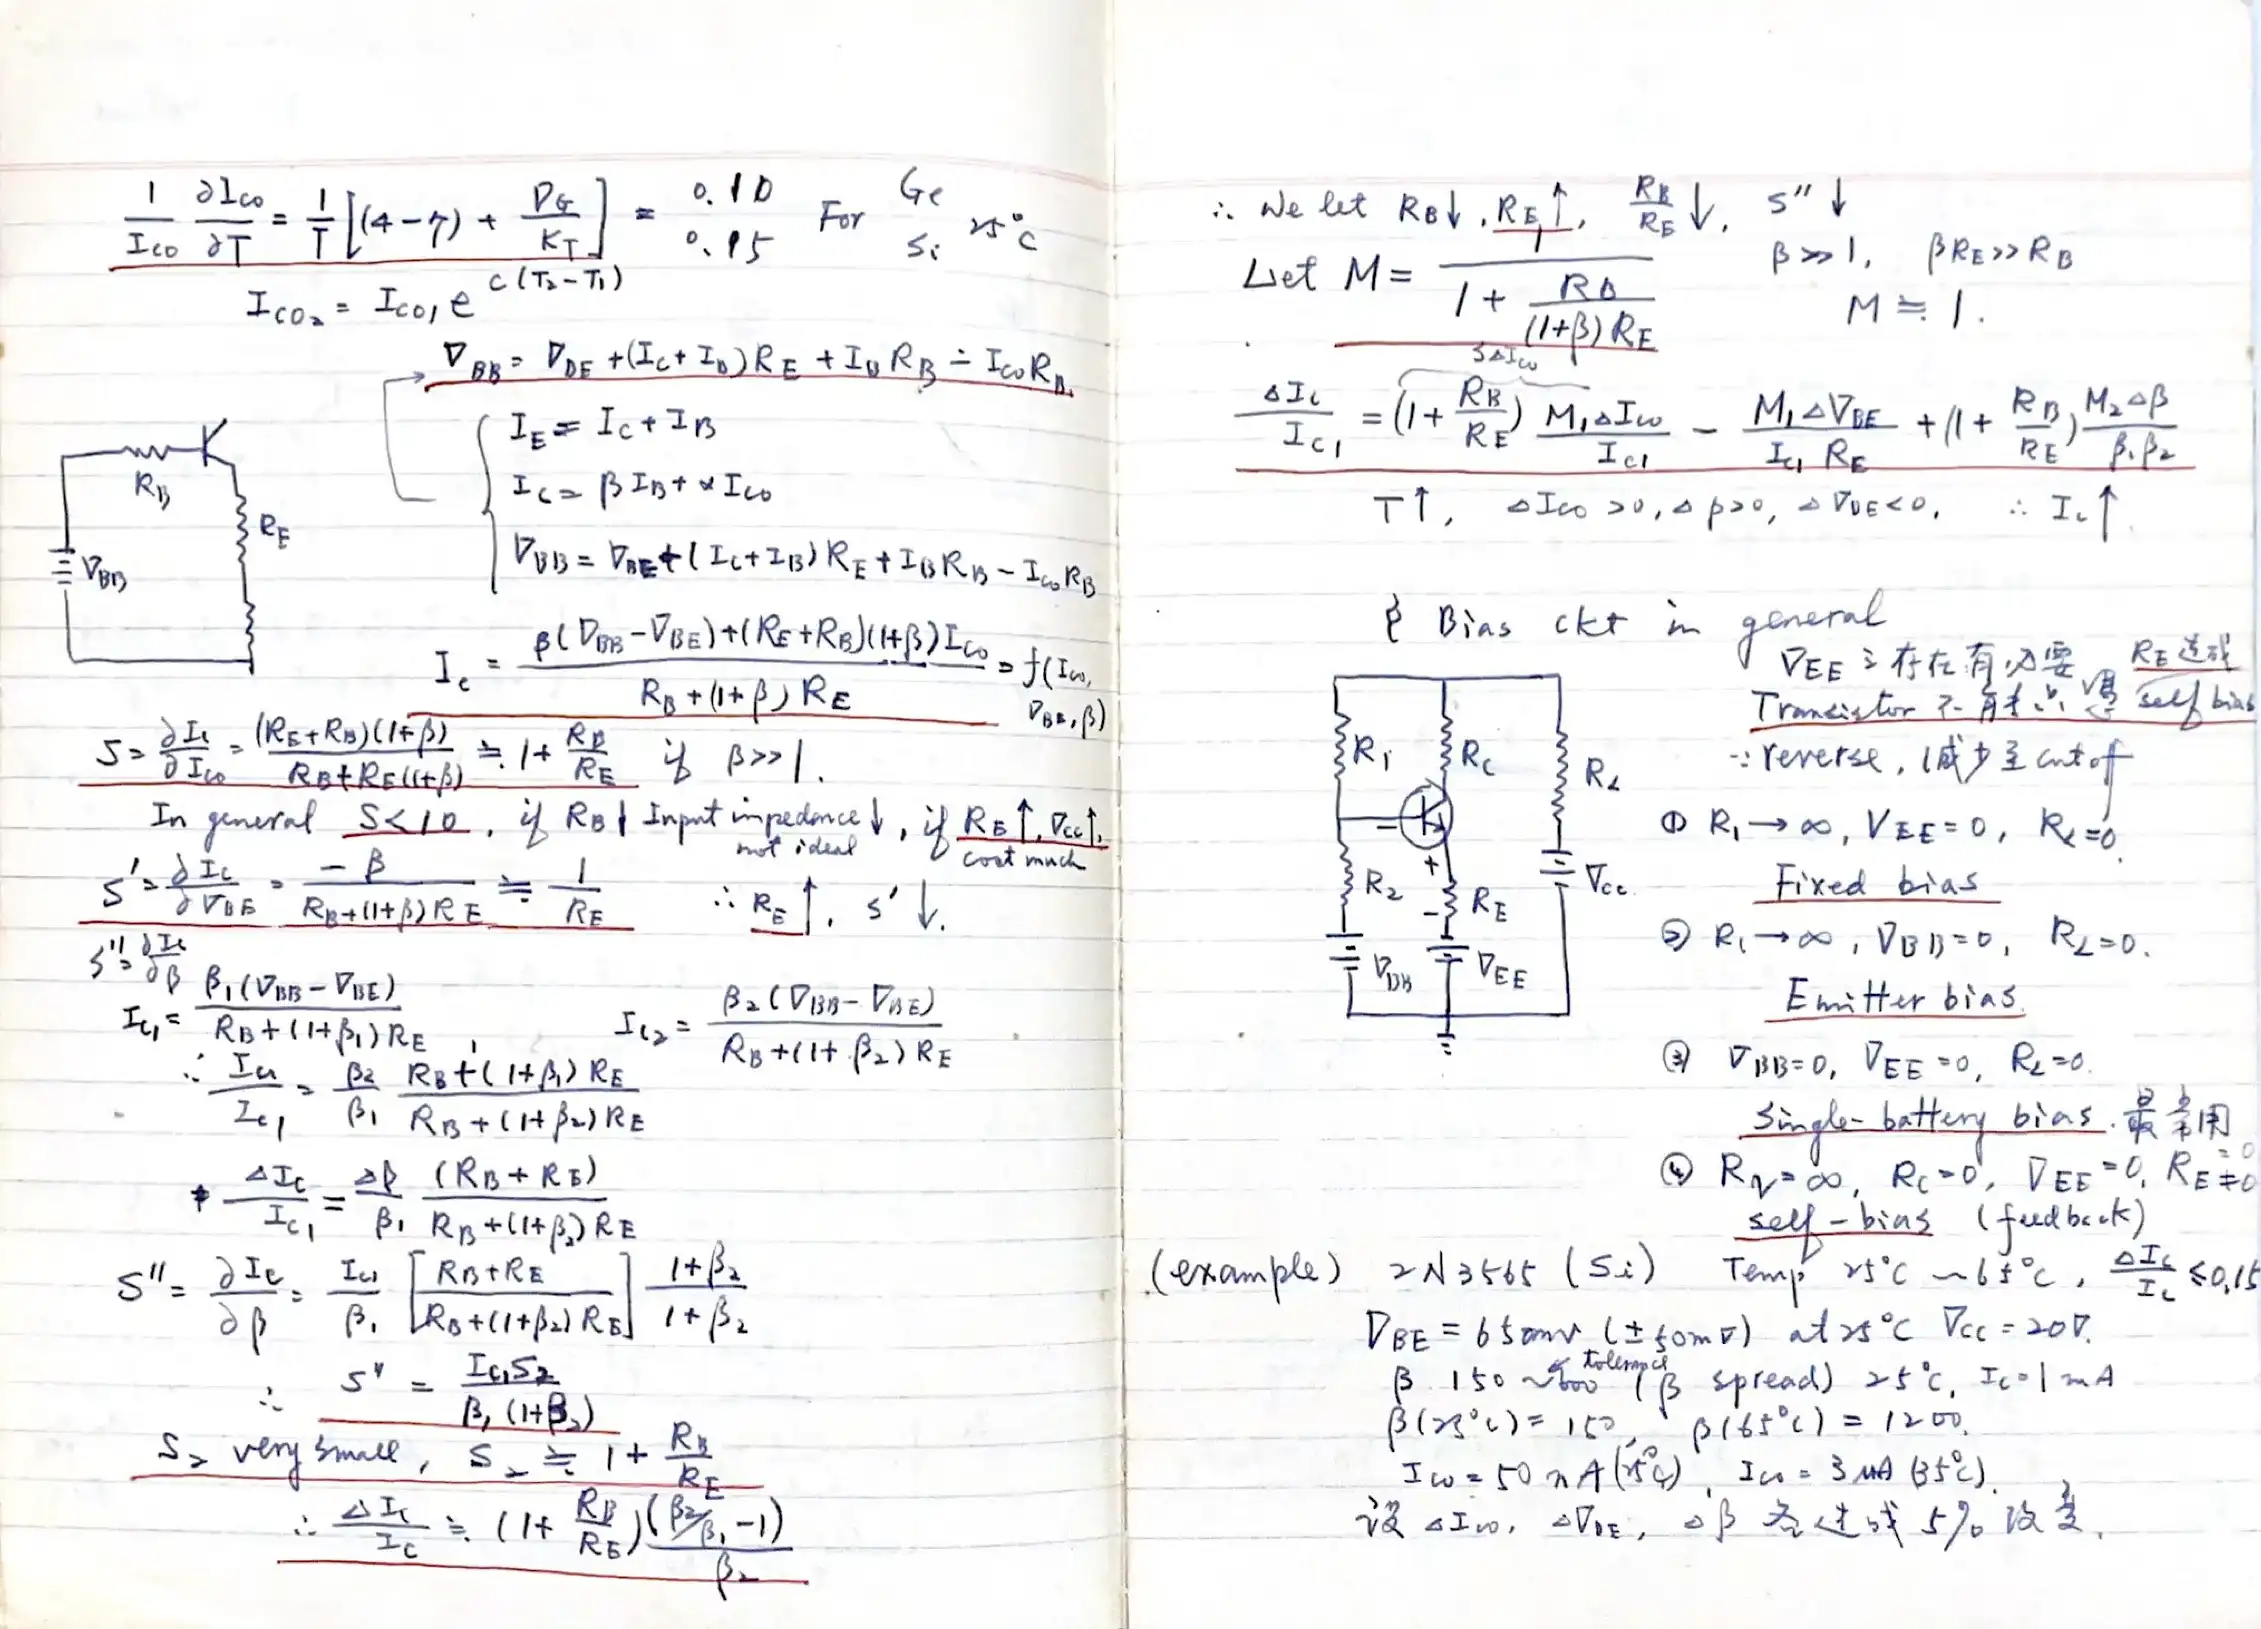 1/I_CO ∂I_CO/∂T = 1/T [(4-η) + V_G/K_T] = 0.10 0.15 For Ge Si 25°C
I_CO2 = I_CO1 e^c(T2-T1)
V_BB = V_BE + (I_C + I_B) R_E + I_B R_B - I_CO R_B
I_E = I_C + I_B
I_C = β I_B + I_CO
V_BB = V_BE + (I_C + I_B) R_E + I_B R_B - I_CO R_B
R_B
R_E
V_BB
I_C = [β(V_BB - V_BE) + (R_E + R_B)(1+β) I_CO] / [R_B + (1+β) R_E] = f(I_CO, V_BE, β)
S = ∂I_C/∂I_CO = (R_E + R_B)(1+β) / [R_B + R_E(1+β)] ≒ 1 + R_B/R_E if β>>1.
In general S<10, if R_B↓ Input impedance↓, if R_E↑, V_CC↑.
not ideal
cost much
S' = ∂I_C/∂V_BE = -β / [R_B + (1+β) R_E] ≒ 1/R_E ∴ R_E↑, S'↓.
S'' = ∂I_C/∂β
I_C1 = β1(V_BB - V_BE) / [R_B + (1+β1) R_E], I_C2 = β2(V_BB - V_BE) / [R_B + (1+β2) R_E]
∴ I_C2/I_C1 = β2/β1 [R_B + (1+β1) R_E] / [R_B + (1+β2) R_E]
ΔI_C/I_C1 = Δβ/β1 (R_B + R_E) / [R_B + (1+β2) R_E]
S'' = ∂I_C/∂β = I_C1/β1 [(R_B + R_E) / (R_B + (1+β2) R_E)] (1+β2)/(1+β2)
∴ S'' = I_C1 S2 / β1(1+β2)
S2 very small, S2 ≒ 1 + R_B/R_E
∴ ΔI_C/I_C ≒ (1 + R_B/R_E) (β2/β1 - 1)/β2
∴ We let R_B↓, R_E↑, R_B/R_E↓, S''↓
Let M = 1 / [1 + R_B/((1+β) R_E)] β>>1, βR_E>>R_B
M ≒ 1.
SΔI_CO
ΔI_C/I_C1 = (1 + R_B/R_E) M1ΔI_CO/I_C1 - M1ΔV_BE/(I_C1 R_E) + (1 + R_B/R_E) M2Δβ/(β1β2)
T↑, ΔI_CO>0, Δβ>0, ΔV_BE<0, ∴ I_C↑
Bias ckt in general
V_EE 之存在有必要 R_E 造成
Transistor 不 self bias
∵ reverse, 減少至 cut off
R1
RC
RL
R2
RE
VCC
VBB
VEE
① R1→∞, V_EE=0, R_L=0.
Fixed bias
② R1→∞, V_BB=0, R_L=0.
Emitter bias.
③ V_BB=0, V_EE=0, R_L=0.
Single-battery bias. 最常用
④ R2=∞, R_C=0, V_EE=0, R_E≠0 =0
self-bias (feedback)
(example) 2N3565 (Si) Temp 25°C ~ 65°C, ΔI_C/I_C ≤0.15
V_BE = 650mv (±50mV) at 25°C V_CC = 20V.
tolerance
β 150 ~ 600 (β spread) 25°C, I_C=1mA
β(25°C) = 150, β(65°C) = 1200.
I_CO = 50nA (25°C), I_CO = 3μA (35°C).
設 ΔI_CO, ΔV_BE, Δβ 各造成 5% 改变.